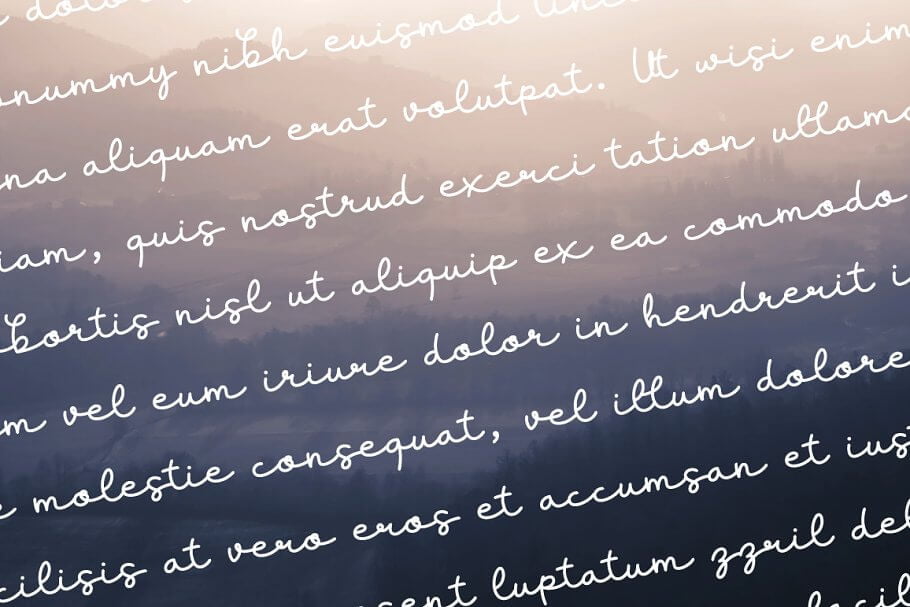 dolor
onummy nibh euismod tinci
na aliquam erat volutpat. Ut wisi enim
iam, quis nostrud exerci tation ullamc
bortis nisl ut aliquip ex ea commodo
m vel eum iriure dolor in hendrerit i
e molestie consequat, vel illum dolore
cilisis at vero eros et accumsan et iust
sent luptatum zzril del
facil